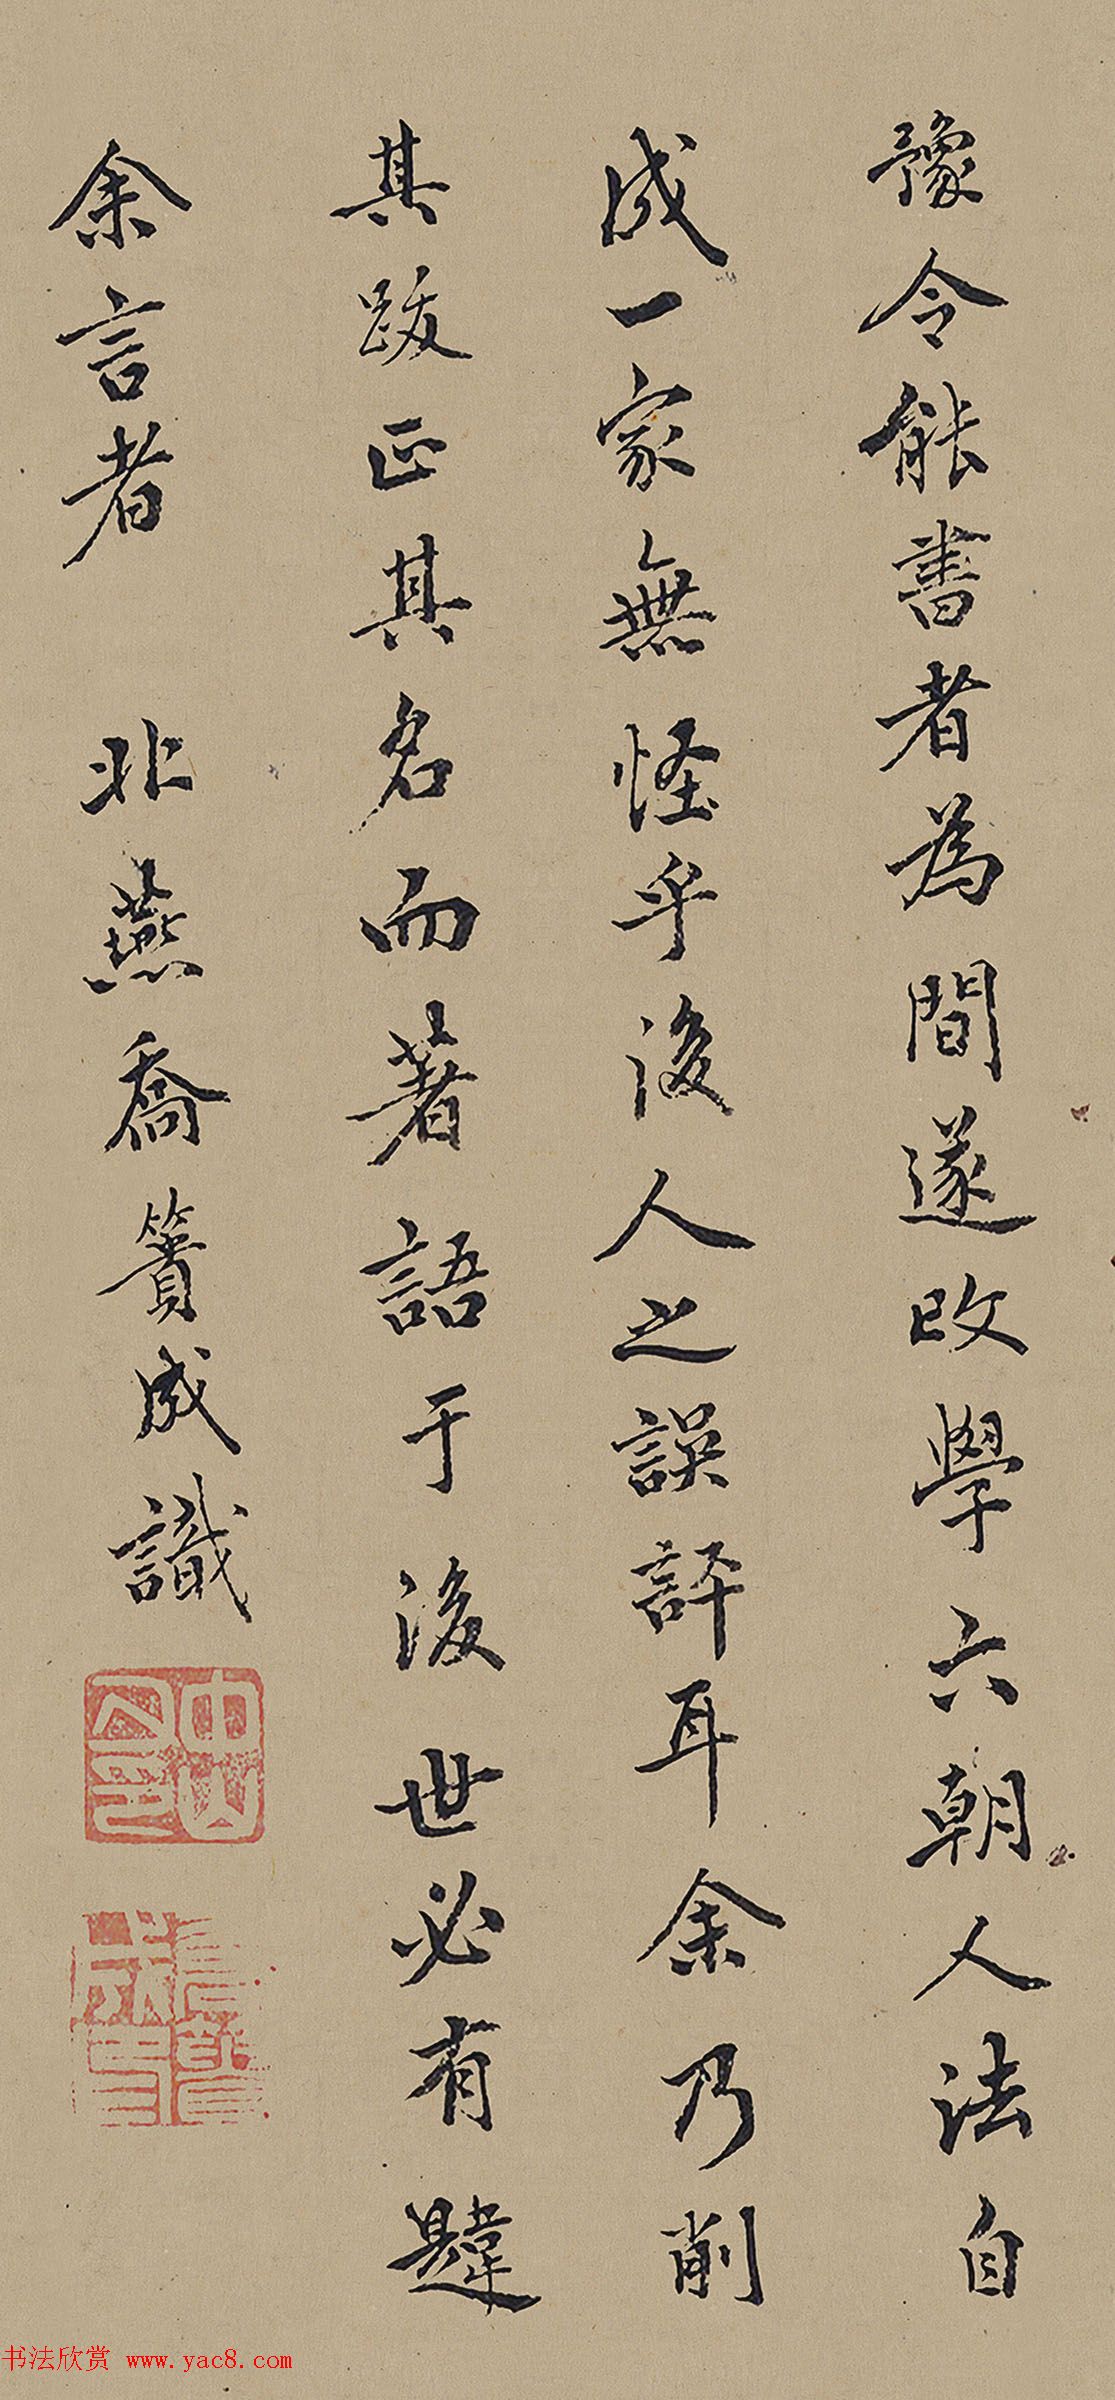 豫令能書者為間遂改學六朝人法自
成一家無怪乎後人之誤評耳余乃削
其跋正其名而著語于後後世必有韙
余言者　北燕喬簣成識
书法欣赏 www.yac8.com